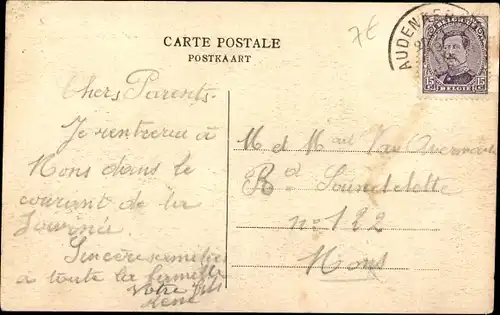 7€
CARTE POSTALE
POSTKAART
AUDEN
BELGIQUE
15 15
BELGIE
Chers Parents.
Je rentrerai à
Mons dans le
courant de la
Journée.
Sincères amitiés
à toute la famille
Votre fils
René
M et Mme Van
Bd
n° 122
Mons